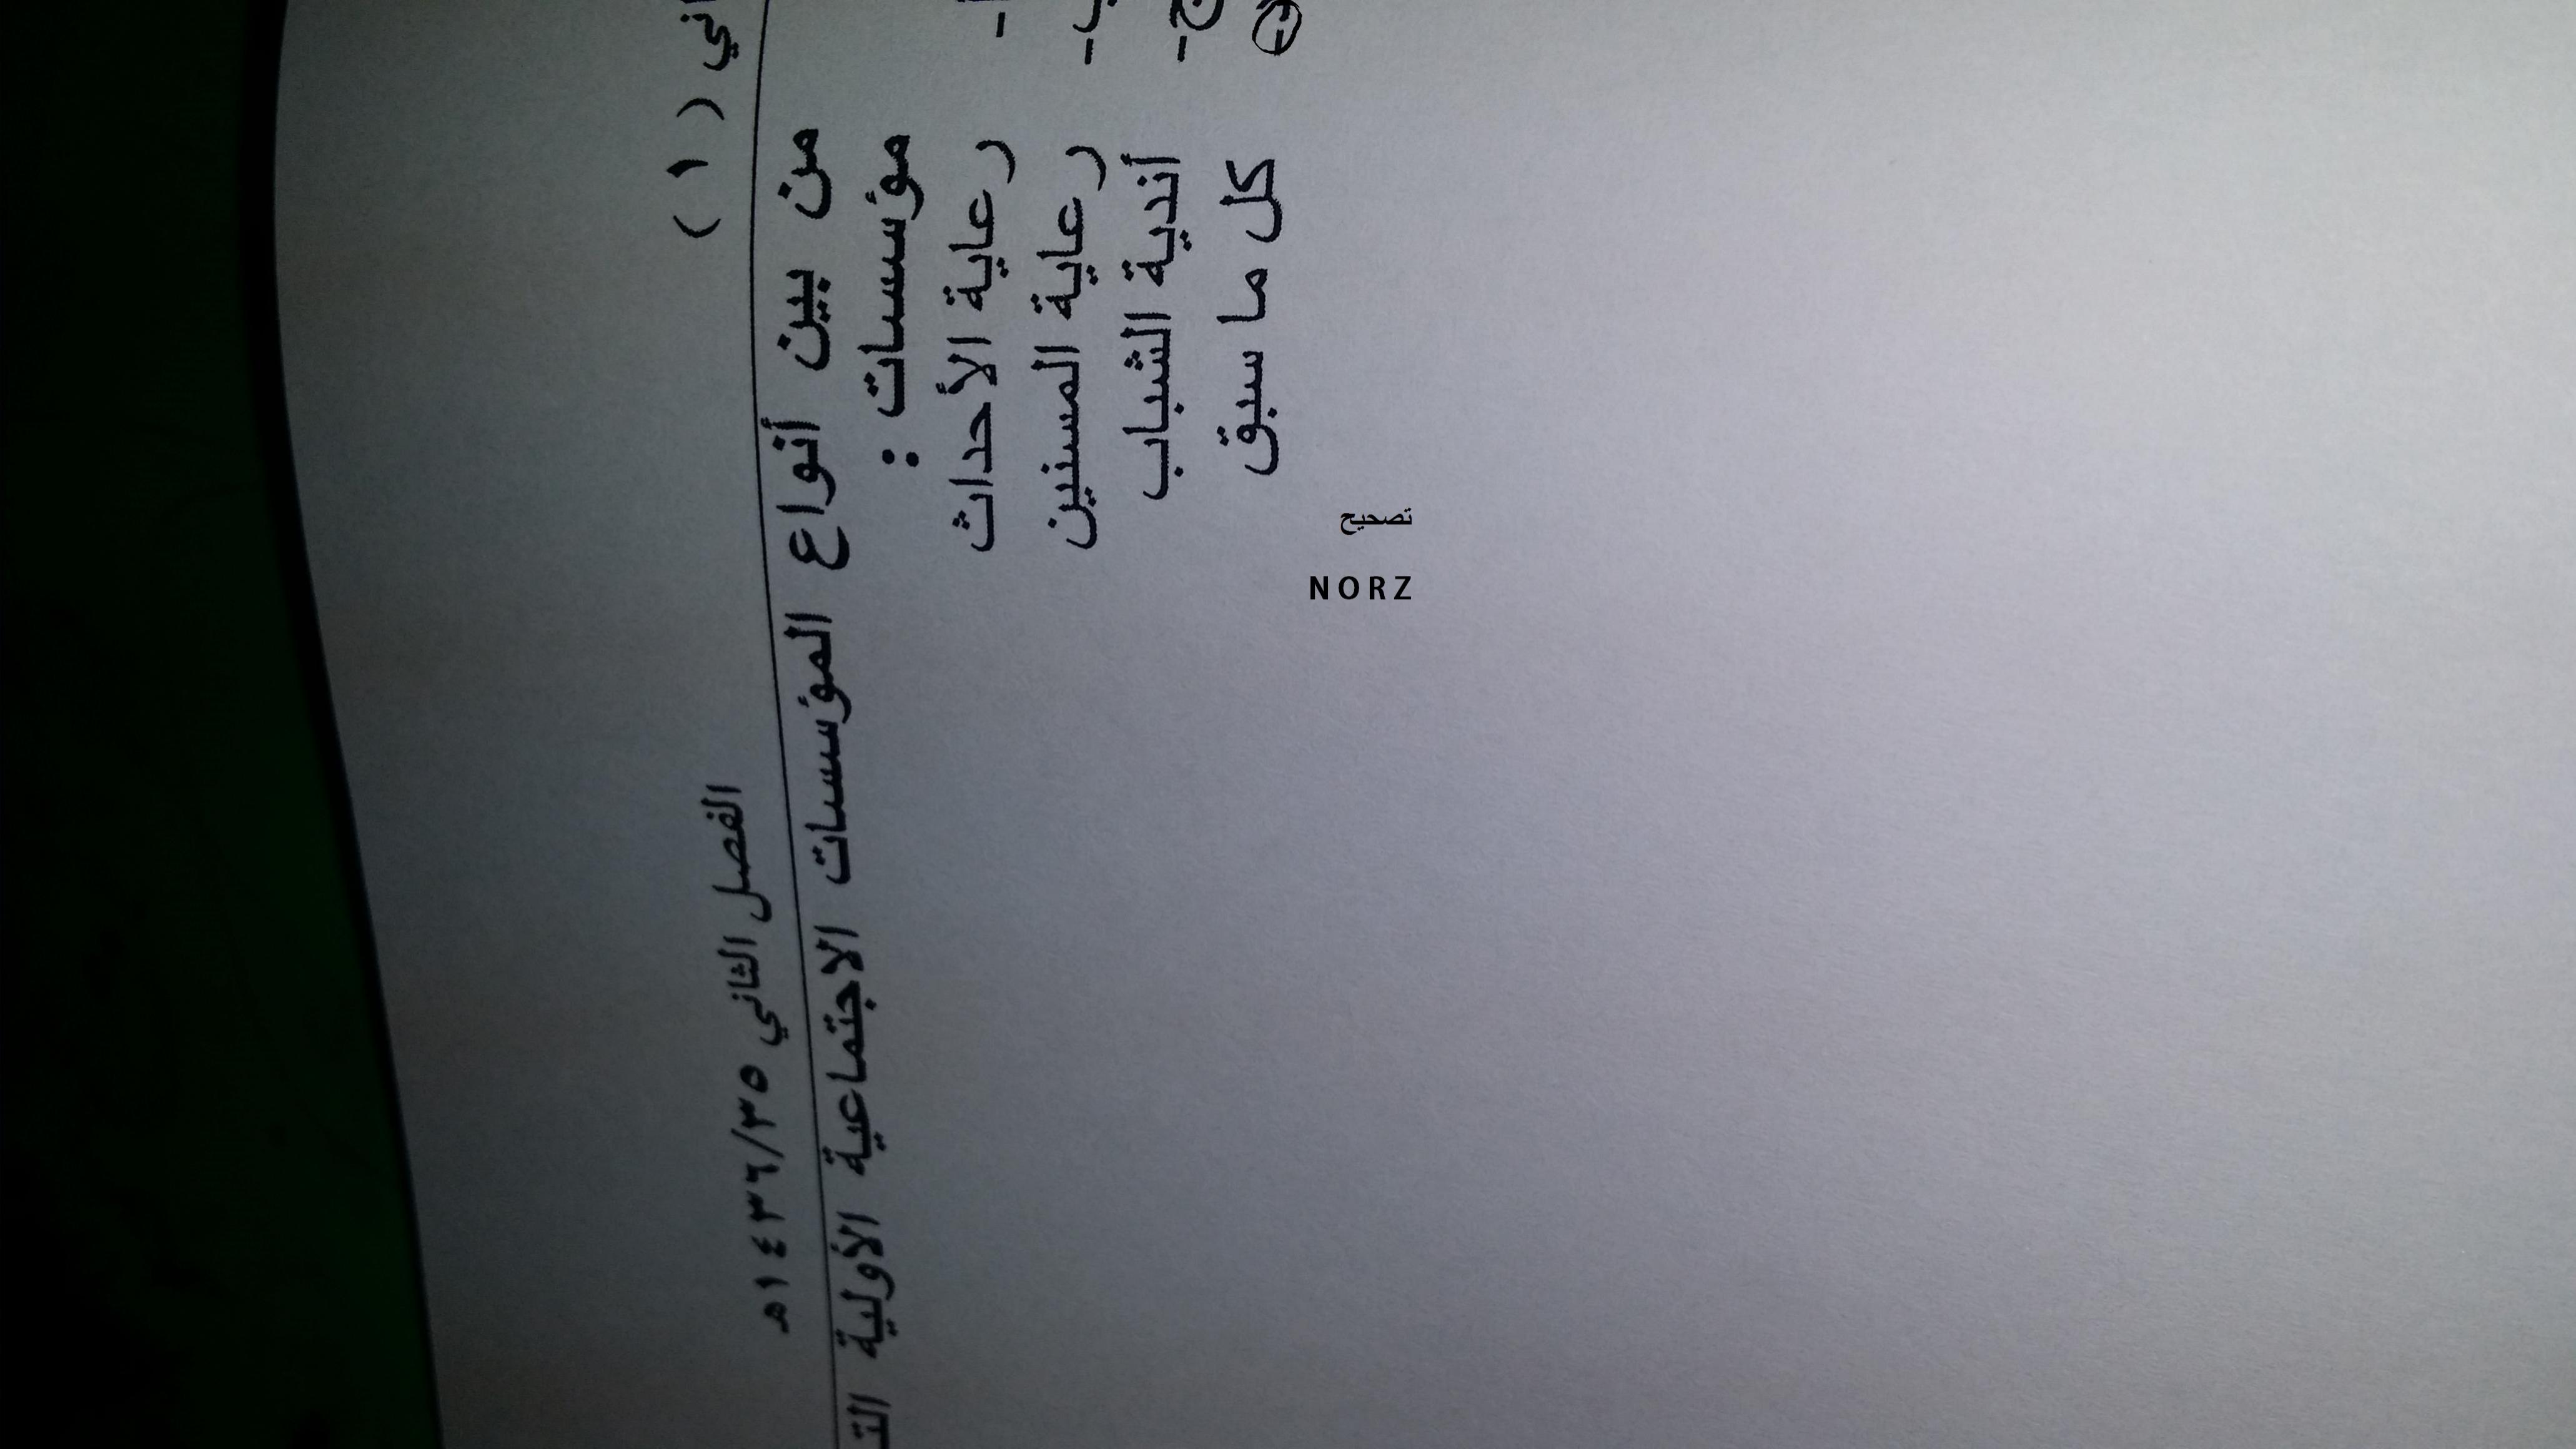 ( ١ ) الفصل الثاني ١٤٣٦/٣٥هـ
من بين أنواع المؤسسات الاجتماعية الأولية
مؤسسات :
- رعاية الأحداث
ب- رعاية المسنين
ج- أندية الشباب
كل ما سبق
تصحيح
NORZ